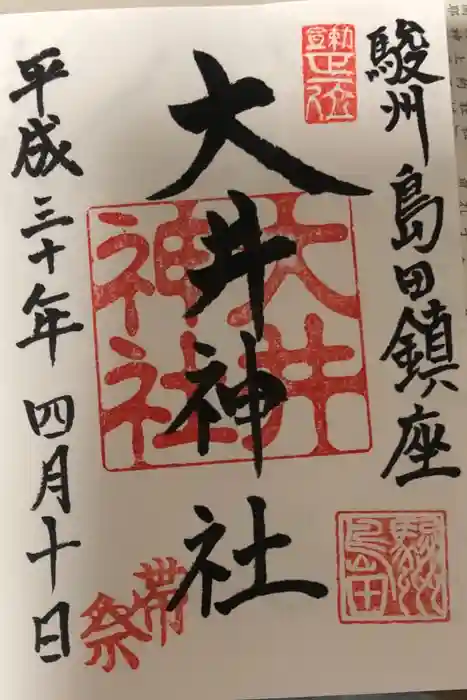 駿州 島田鎮座
勅宣正一位
大井神社
大井神社
駿州島田
帯祭
平成三十年 四月十日